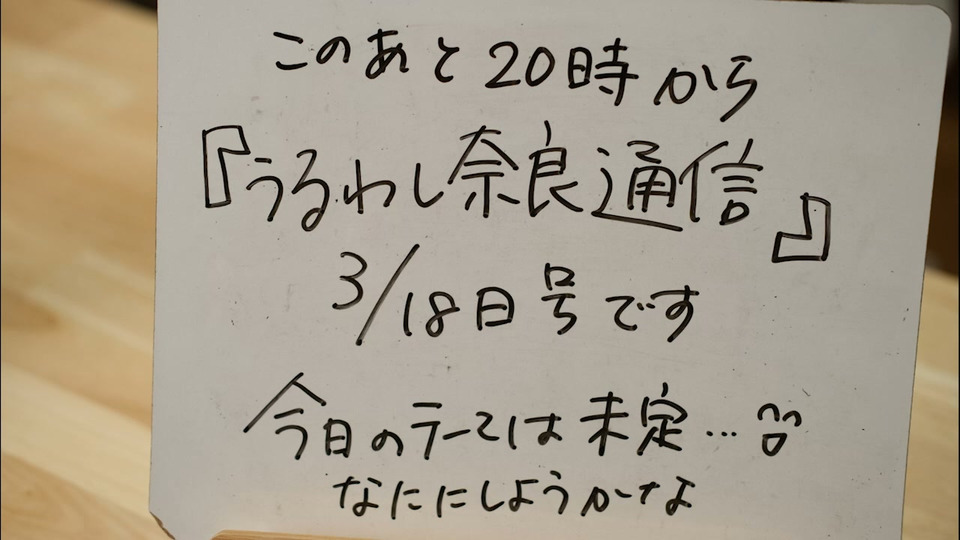 このあと20時から
『うるわし奈良通信』
3/18日号です
今日のテーマは未定…
なににしようかな